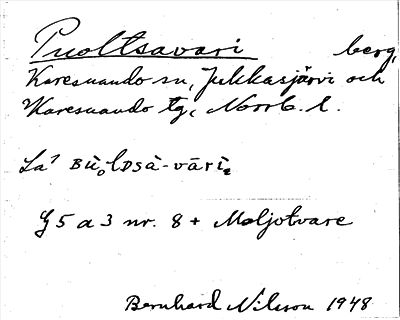 Puoltsavari berg,
Karesuando sn, Jukkasjärvi och
Karesuando tg, Norrb. l.
La' Bu̥oLDSà-vāri
§ 5 a 3 nr. 8 + Maljotvare
Bernhard Nilsson 1948